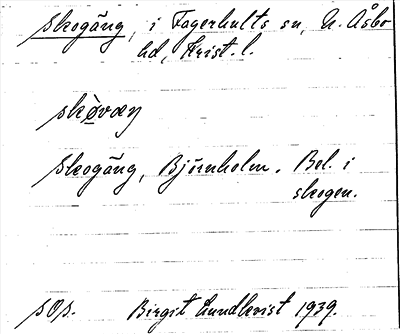 Skogäng, i Fagerhults sn, N. Åsbo
hd, Krist. l.
skọ̀væŋ
Skogäng, Björnholm. Bel. i
skogen.
sOs. Birgit Lundkvist 1939.